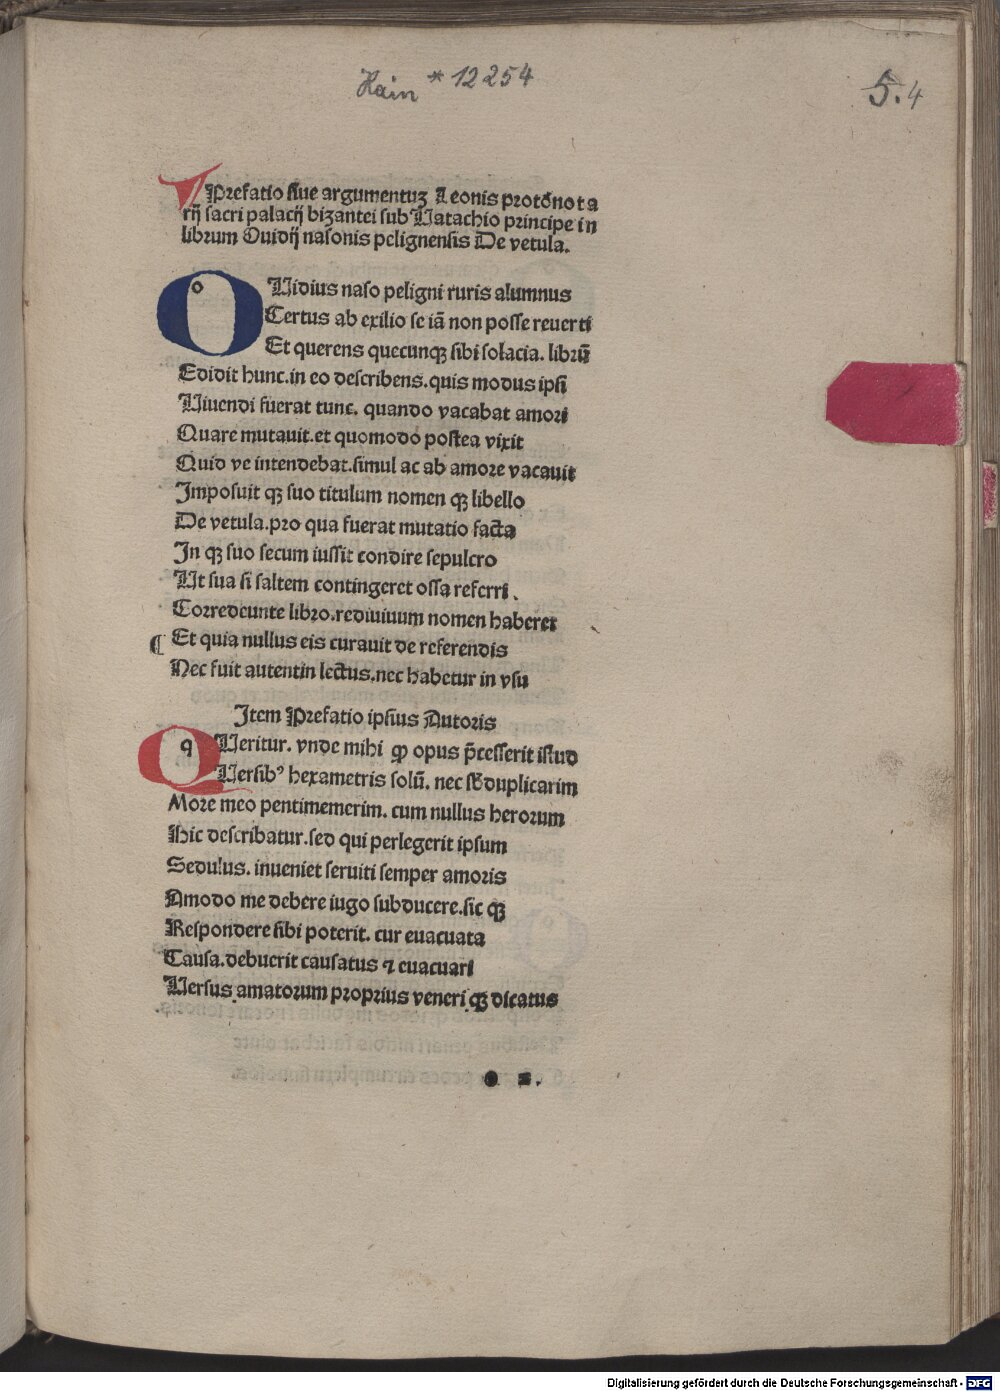 Hain * 12254
5.4
Prefatio siue argumentuʒ Leonis protōnota
rĳ sacri palacĳ biʒantei sub Vatachio principe in
librum Ouidĳ nasonis pelignensis De vetula.
OVidius naso peligni ruris alumnus
Certus ab exilio se iā non posse reuerti
Et querens quecunqꝫ sibi solacia. librū
Edidit hunc.in eo describens.quis modus ipsi
Viuendi fuerat tunc. quando vacabat amori
Quare mutauit.et quomodo postea vixit
Quid ve intendebat.simul ac ab amore vacauit
Imposuit qꝫ suo titulum nomen qꝫ libello
De vetula.pro qua fuerat mutatio facta
In qꝫ suo secum iussit condire sepulcro
Vt sua si saltem contingeret ossa referri.
Corredeunte libro.rediuiuum nomen haberet
¶ Et quia nullus eis curauit de referendis
Nec fuit autentin lectus.nec habetur in vsu
Item Prefatio ipsius Autoris
QVeritur. vnde mihi ꝙ opus p̄cesserit istud
Versibꝰ hexametris solū. nec sꝫ duplicarim
More meo pentimemerim. cum nullus herorum
Hic describatur.sed qui perlegerit ipsum
Sedulus. inueniet seruiti semper amoris
Amodo me debere iugo subducere.sic qꝫ
Respondere sibi poterit. cur euacuata
Causa.debuerit causatus ⁊ euacuari
Versus amatorum proprius veneri qꝫ dicatus
Digitalisierung gefördert durch die Deutsche Forschungsgemeinschaft - DFG